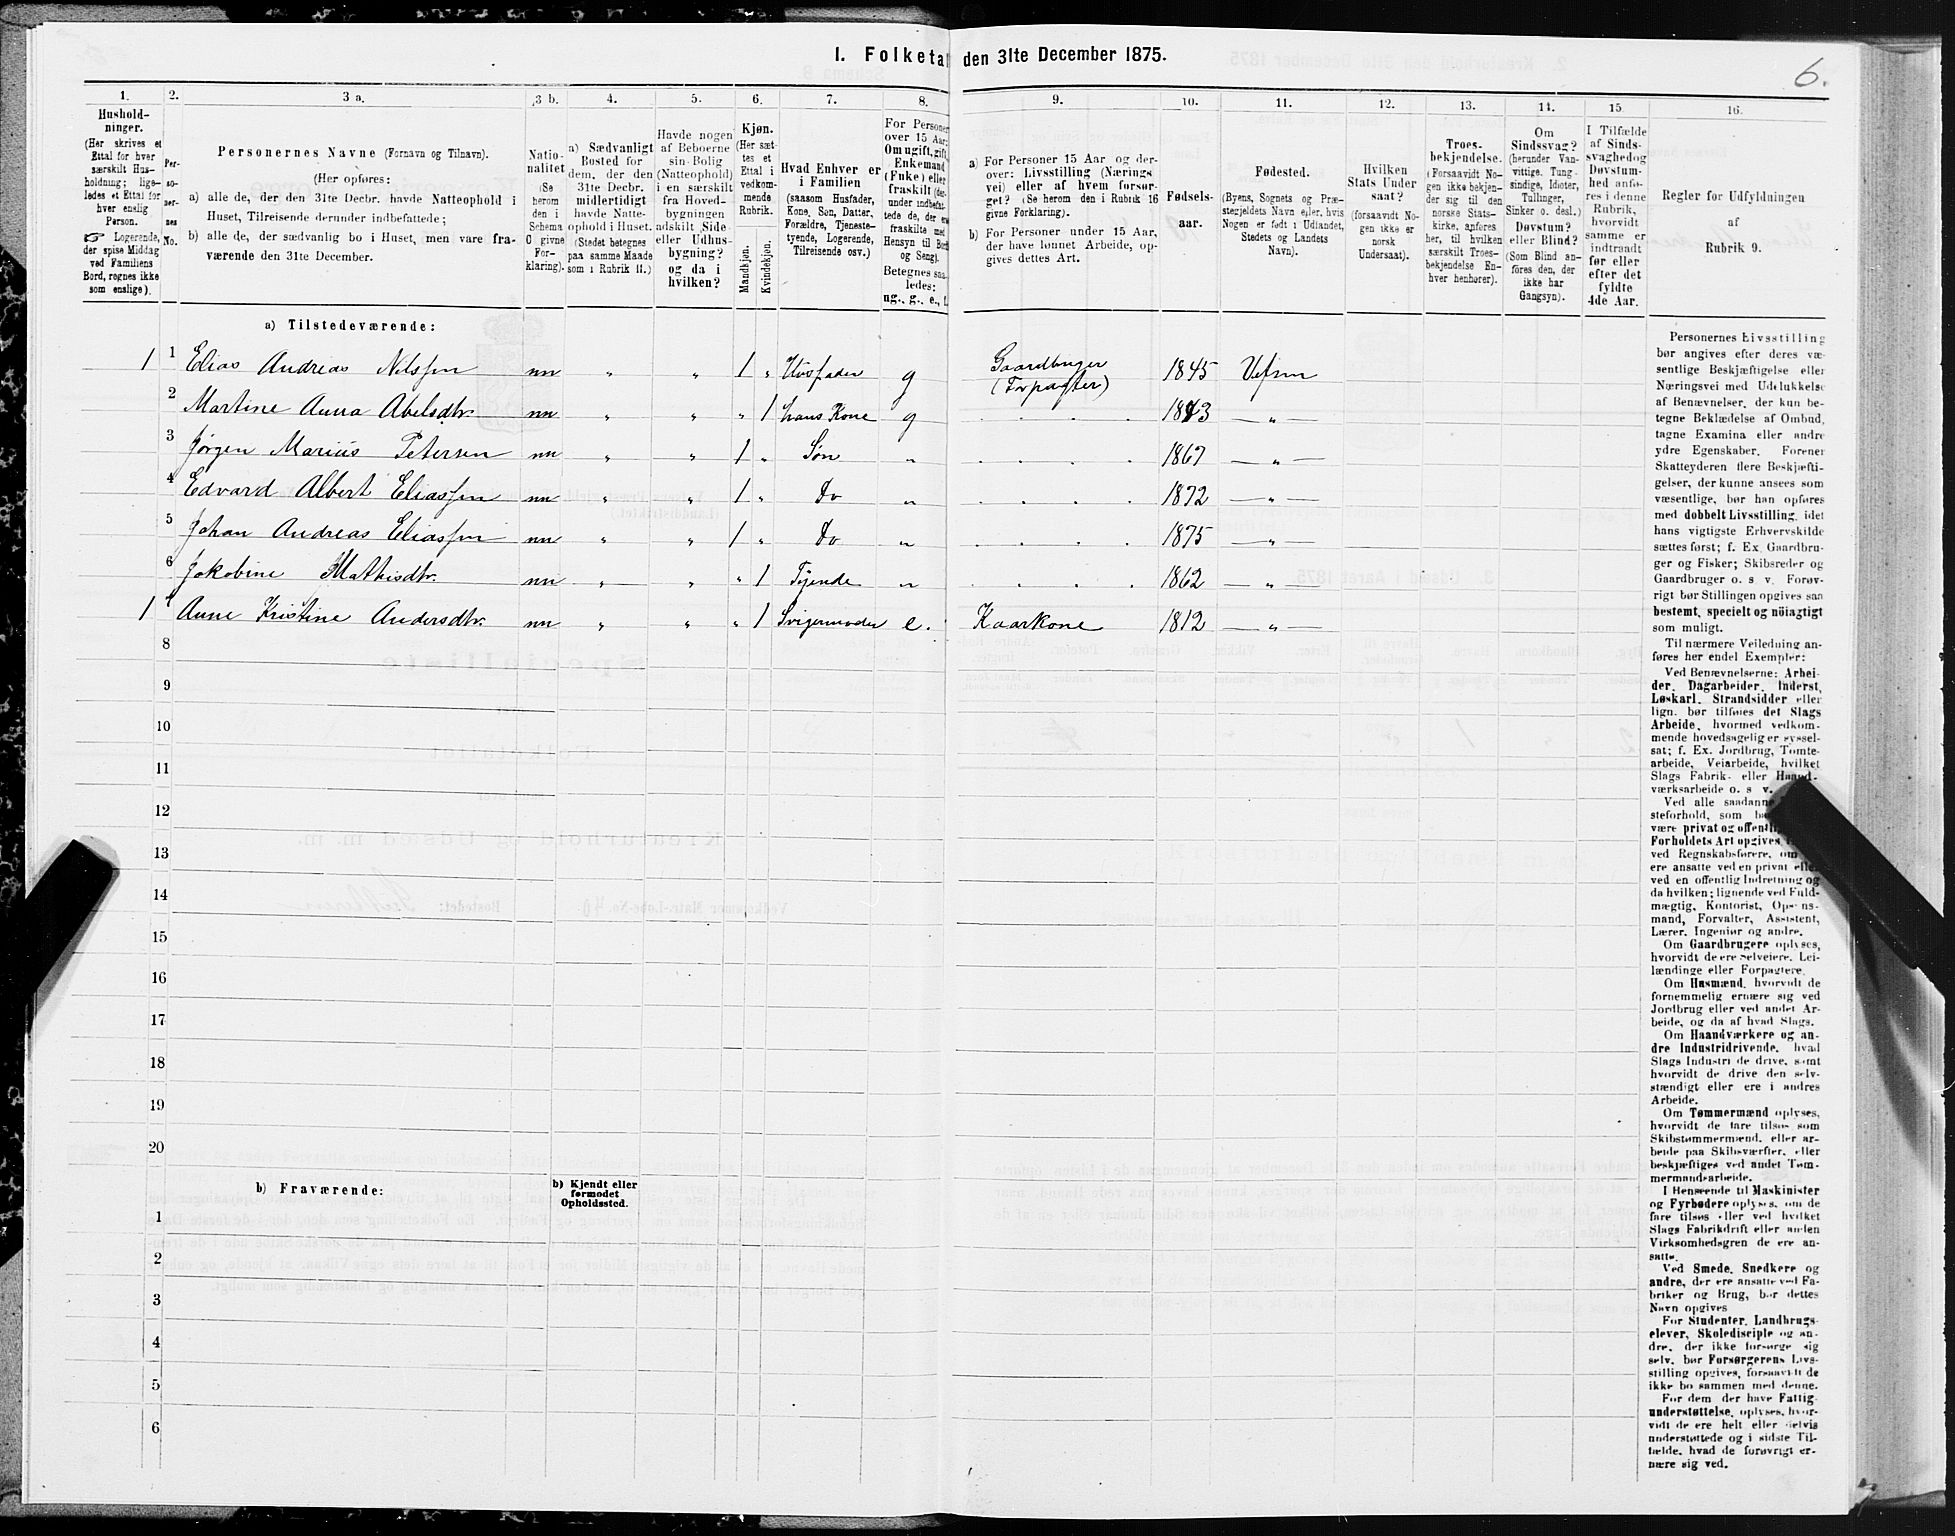 I. Folketal den 31te December 1875.
6.
1. 2. 3 a. 3 b. 4. 5. 6. 7. 8. 9. 10. 11. 12. 13. 14. 15 16.
Hushold-
ninger.
(Her skrives et
Ettal for hver
særskilt Hus-
holdning; lige-
ledes et Ettal for
hver enslig
Person.
☞ Logerende,
der spise Middag
ved Familiens
Bord, regnes ikke
som enslige).
Per-
so-
ner-
nes
No.
Personernes Navne (Fornavn og Tilnavn).
(Her opføres:
a) alle de, der den 31te Decbr. havde Natteophold i
Huset, Tilreisende derunder indbefattede;
b) alle de, der sædvanlig bo i Huset, men vare fra-
værende den 31te December.
Natio-
nalitet
(Se
herom
den i
Schema
O givne
For-
klaring).
a) Sædvanligt
Bosted for
dem, der den
31te Decbr.
midlertidigt
havde Natte-
ophold i Huset.
(Stedet betegnes
paa samme Maade
som i Rubrik 11.)
Havde nogen
af Beboerne
sin Bolig
(Natteophold)
i en særskilt
fra Hoved-
bygningen
adskilt Side-
eller Udhus-
bygning?
og da i
hvilken?
Kjøn.
(Her sæt-
tes et
Ettal i
vedkom-
mende
Rubrik.
Mandkjøn.
Kvindekjøn.
Hvad Enhver er
i Familien
(saasom Husfader,
Kone, Søn, Datter,
Forældre, Tjeneste-
tyende, Logerende,
Tilreisende osv.)
For Personer
over 15 Aar:
Om ugift, gift,
Enkemand
(Enke) eller
fraskilt (der-
under indbefat-
tede de, der ere
fraskilte med
Hensyn til Bord
og Seng).
Betegnes saa-
ledes:
ug., g., e., f.
a) For Personer 15 Aar og der-
over: Livsstilling (Nærings-
vei) eller af hvem forsør-
get? (Se herom den i Rubrik 16
givne Forklaring).
b) For Personer under 15 Aar,
der have lønnet Arbeide, op-
gives dettes Art.
Fødsels-
aar.
Fødested.
(Byens, Sognets og Præ-
stegjeldets Navn eller, hvis
Nogen er født i Udlandet,
Stedets og Landets
Navn).
Hvilken
Stats Under
saat?
(forsaavidt No-
gen ikke er
norsk
Undersaat).
Troes-
bekjendelse.
(Forsaavidt No-
gen ikke bekjen-
der sig til den
norske Stats-
kirke, anføres
her, til hvilken
særskilt Troes-
bekjendelse En-
hver henhører).
Om
Sindssvag?
(herunder Van-
vittige, Tung-
sindige, Idioter,
Tullinger,
Sinker o. desl.)
Døvstum?
eller Blind?
(Som Blind an-
føres den, der
ikke har
Gangsyn).
I Tilfælde
af Sinds-
svaghedog
Døvstum-
hed anfø-
res i denne
Rubrik,
hvorvidt
samme er
indtraadt
før eller
efter det
fyldte
4de Aar.
Regler for Udfyldningen
af
Rubrik 9.
a) Tilstedeværende:
1 1 Elias Andreas Nilssen nn " " 1 " Husfader g Gaardbruger (Forpagter) 1845 Vefsen
2 Martine Anna Abelsdtr. nn " " " 1 hans Kone g 1843 — " —
3 Jørgen Marius Petersen nn " " 1 " Søn " 1867 — " —
4 Edvard Albert Eliassen nn " " 1 " Do " 1872 — " —
5 Johan Andreas Eliassen nn " " 1 " Do " 1875 — " —
6 Jakobine Mathisdtr. nn " " " 1 Tjende " 1862 — " —
1 7 Anne Kristine Andersdtr. nn " " " 1 Svigermoder e. Kaarkone 1812 — " —
8
9
10
11
12
13
14
15
16
17
18
19
20
b) Fraværende:
b) Kjendt eller
formodet
Opholdssted.
1
2
3
4
5
6
Personernes Livsstilling
bør angives efter deres væ-
sentlige Beskjæftigelse eller
Næringsvei med Udelukkelse
af Benævnelser, der kun be-
tegne Beklædelse af Ombud,
tagne Examina eller andre
ydre Egenskaber. Forener
Skatteyderen flere Beskjæfti-
gelser, der kunne ansees som
væsentlige, bør han opføres
med dobbelt Livsstilling, idet
hans vigtigste Erhvervskilde
sættes først; f. Ex. Gaardbru-
ger og Fisker; Skibsreder og
Gaardbruger o. s. v. Forøv-
rigt bør Stillingen opgives saa
bestemt, specielt og nöiagtigt
som muligt.
Til nærmere Veiledning an-
føres her endel Exempler:
Ved Benævnelserne: Arbei-
der, Dagarbeider, Inderst,
Løskarl, Strandsidder eller
lign. bør tilføies det Slags
Arbeide, hvormed vedkom-
mende hovedsagelig er syssel-
sat; f. Ex. Jordbrug, Tomte-
arbeide, Veiarbeide, hvilket
Slags Fabrik- eller Haand-
værksarbeide o. s v.
Ved alle saadanne
steforhold, som
være privat og offentlig
Forholdets Art opgives,
ved Regnskabsførere, om
ere ansatte ved en privat eller
ved en offentlig Indretning og
da hvilken; lignende ved Fuld-
mægtig, Kontorist, Opsyns-
mand, Forvalter, Assistent,
Lærer, Ingeniør og andre.
Om Gaardbrugere oplyses,
hvorvidt de ere Selveiere, Lei-
lændinge eller Forpagtere.
Om Husmænd, hvorvidt de
fornemmelig ernære sig ved
Jordbrug eller ved andet Ar-
beide, og da af hvad Slags.
Om Haandværkere og an-
dre Industridrivende, hvad
Slags Industri de drive, samt
hvorvidt de drive den selv-
stændigt eller ere i andres
Arbeide.
Om Tømmermænd oplyses,
hvorvidt de fare tilsøs som
Skibstømmermænd, eller ar-
beide paa Skibsværfter, eller
beskjæftiges ved andet Tøm-
mermandsarbeide.
I Henseende til Maskinister
og Fyrbødere oplyses, om de
fare tilsøs eller ved hvilket
Slags Fabrikdrift eller anden
Virksomhedsgren de ere an-
satte.
Ved Smede, Snedkere og
andre, der ere ansatte ved Fa-
briker og Brug, bør dettes
Navn opgives
For Studenter, Landbrugs-
elever, Skoledisciple og an-
dre, der ikke forsørge sig
selv, bør Forsørgerens Livs-
stilling opgives, forsaavidt de
ikke bo sammen med denne.
For dem, der have Fattig-
understøttelse, oplyses, hvor-
vidt de ere helt eller delvis
understøttede og i sidste Til-
fælde, hvad de forøvrigt er-
nære sig ved.